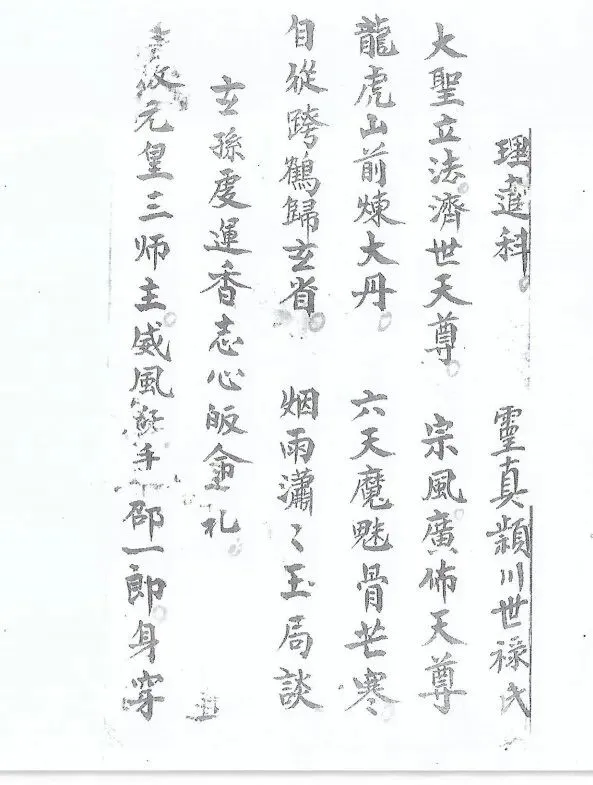 理進科 靈真頴川世祿氏
大聖立法濟世天尊 宗風廣佈天尊
龍虎山前煉大丹 六天魔魅骨芒寒
自從跨鶴歸玄省 烟雨瀟〻玉局談
玄孫虔運香志心皈命礼
元皇三师主威風 手邵一郎身穿